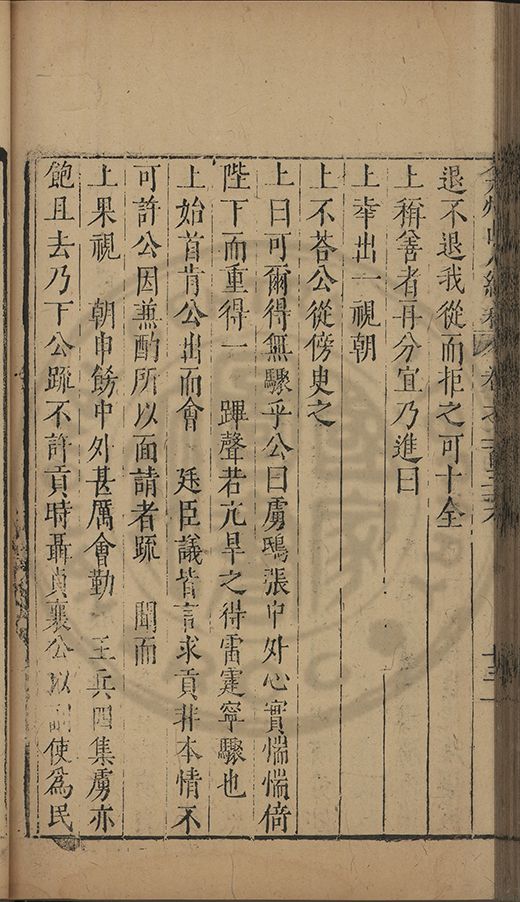 退不退我從而拒之可十全
上稱善者再分宜乃進曰
上幸出一視朝
上不荅公從傍史之
上曰可爾得無驟乎公曰虜鴟張中外心實惴惴倚
陛下而重得一 蹕聲若亢旱之得雷霆寧驟也
上始首肯公出而會 廷臣議皆言求貢非本情不
可許公因兼酌所以面請者䟽 聞而
上果視 朝申飭中外甚厲會勤 王兵四集虜亦
飽且去乃下公䟽不許貢時聶貞襄公以 使爲民